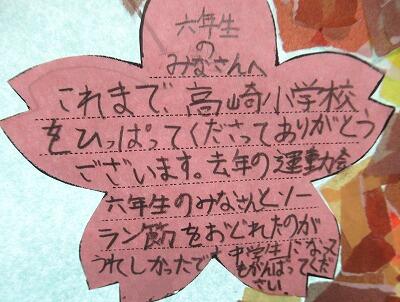 六年生
の
みなさんへ
これまで、高崎小学校
をひっぱってくださってありがとう
ございます。去年の運動会
六年生のみなさんとソー
ラン節をおどれたのが
うれしかったです。中学生になって
もがんばってくだ
さい。